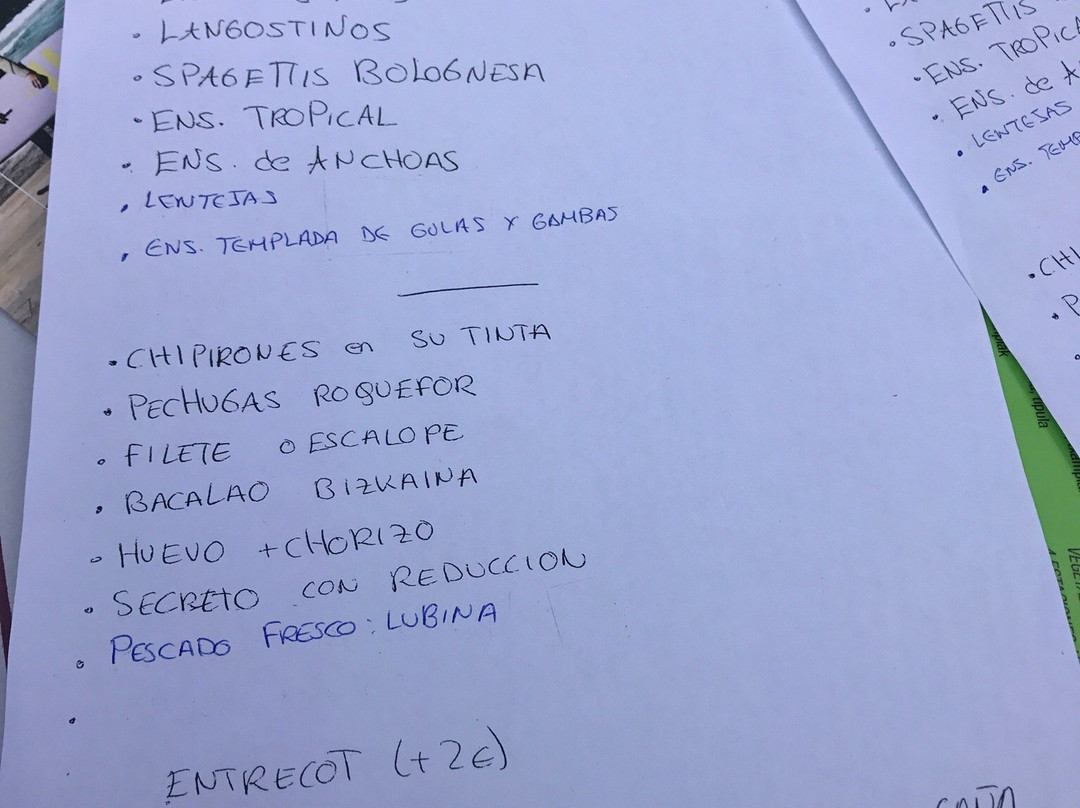 • LANGOSTINOS
• SPAGETTIS BOLOGNESA
• ENS. TROPICAL
• ENS. de ANCHOAS
• LENTEJAS
• ENS. TEMPLADA DE GULAS Y GAMBAS
• CHIPIRONES en SU TINTA
• PECHUGAS ROQUEFOR
• FILETE O ESCALOPE
• BACALAO BIZKAINA
• HUEVO + CHORIZO
• SECRETO CON REDUCCION
• PESCADO FRESCO: LUBINA
•
ENTRECOT (+2€)
• SPAGETTIS
• ENS. TROPICA
• ENS. de A
• LENTEJAS
• ENS. TEMP
• CHI
• P
tipula